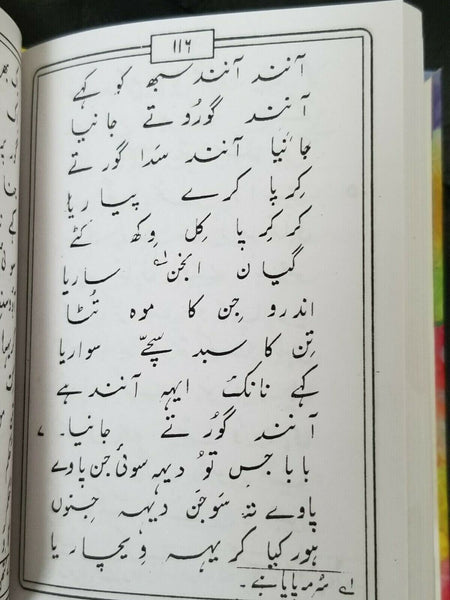 ۱۱۶
آنند آنند سبھ کو کہے
آنند گورُو تے جانیا
جانیا آنند سَدا گور تے
کِرپا کرے پیاریا
کر کِرپا کِل وِکھ کَٹے
گیان انجن لہ ساریا
اندرو جِن کا موہ تُٹا
تِن کا سبد سچّے سواریا
کہے نانک ایہہ آنند ہے
آنند گورُ تے جانیا۔ ۷
بابا جِس تُو دیہہ سوئی جن پاوے
پاوے تہ سَو جَن دیہہ جِنوں
ہور کیا کر یہہ وِیچاریا
لہ سُرمہ پایا ہے۔